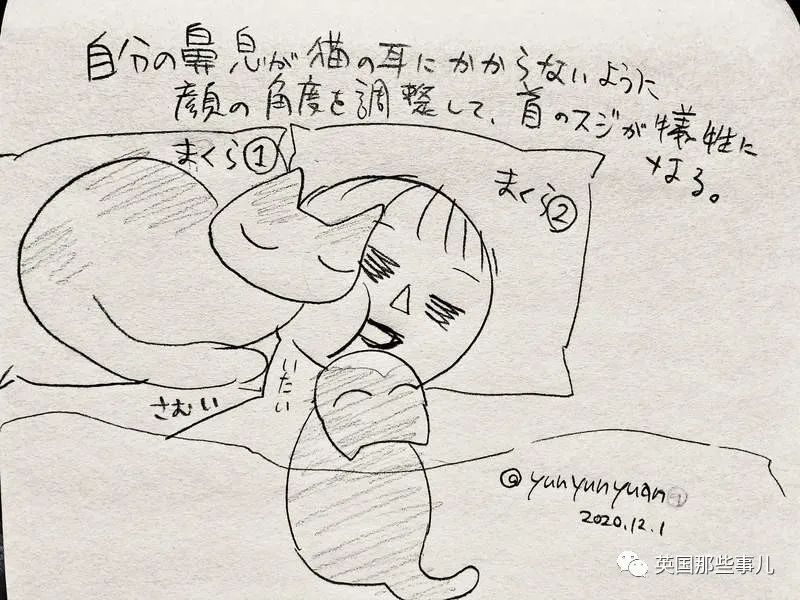 自分の鼻息が猫の耳にかからないように
顔の角度を調整して、首のスジが犠牲に
なる。
まくら①
まくら②
いたい
さむい
@yunyunyuan
2020.12.1
英国那些事儿